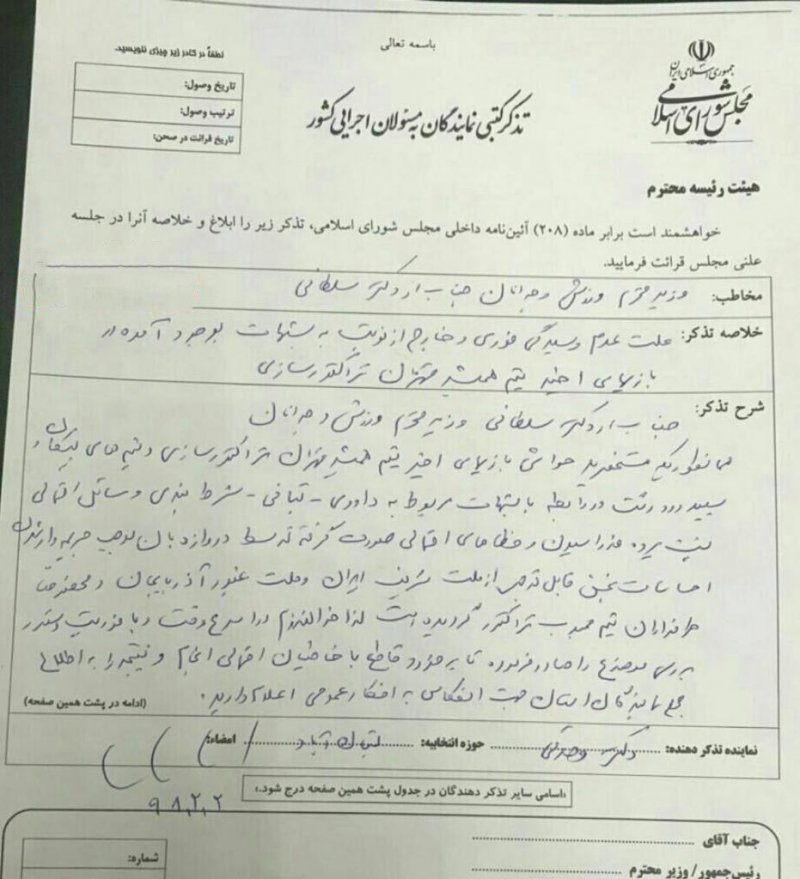 باسمه تعالی
جمهوری اسلامی ایران
مجلس شورای اسلامی
تذکر کتبی نمایندگان به مسئولان اجرایی کشور
لطفاً در کادر زیر چیزی ننویسید.
تاریخ وصول:
ترتیب وصول:
تاریخ قرائت در صحن:
هیئت رئیسه محترم
خواهشمند است برابر ماده (۲۰۸) آئین‌نامه داخلی مجلس شورای اسلامی، تذکر زیر را ابلاغ و خلاصه آنرا در جلسه
علنی مجلس قرائت فرمایید.
مخاطب: وزیر محترم ورزش و جوانان جناب آقای دکتر سلطانی
خلاصه تذکر: علت عدم رسیدگی فوری و خارج از نوبت به شبهات بوجود آمده در
بازیهای اخیر تیم همیشه قهرمان تراکتورسازی
شرح تذکر: جناب آقای دکتر سلطانی وزیر محترم ورزش و جوانان
همانطوریکه مستحضرید حواشی بازیهای اخیر تیم همیشه قهرمان تراکتورسازی و تیم های پیکان و
سپیدرود رشت در رابطه با شبهات مربوط به داوری - تبانی - شرط بندی و مسائل احتمالی
پشت پرده فدراسیون و خطاهای احتمالی صورت گرفته توسط دروازه بان موجب جریحه دار شدن
احساسات بخش قابل توجهی از ملت شریف ایران و ملت غیور آذربایجان و مخصوصاً
طرفداران تیم محبوب تراکتور گردیده است لذا در اسرع وقت و با فوریت دستور
بررسی موضوع را صادر فرموده تا برخورد قاطع با خاطیان احتمالی انجام و نتیجه را به اطلاع
مجمع نمایندگان استان جهت انعکاس به افکار عمومی اعلام دارید.
(ادامه در پشت همین صفحه)
نماینده تذکر دهنده: دکتر حوزه انتخابیه: امضاء:
۹۸,۲,۲
«اسامی سایر تذکر دهندگان در جدول پشت همین صفحه درج شود.»
جناب آقای
رئیس‌جمهور/ وزیر محترم
شماره: